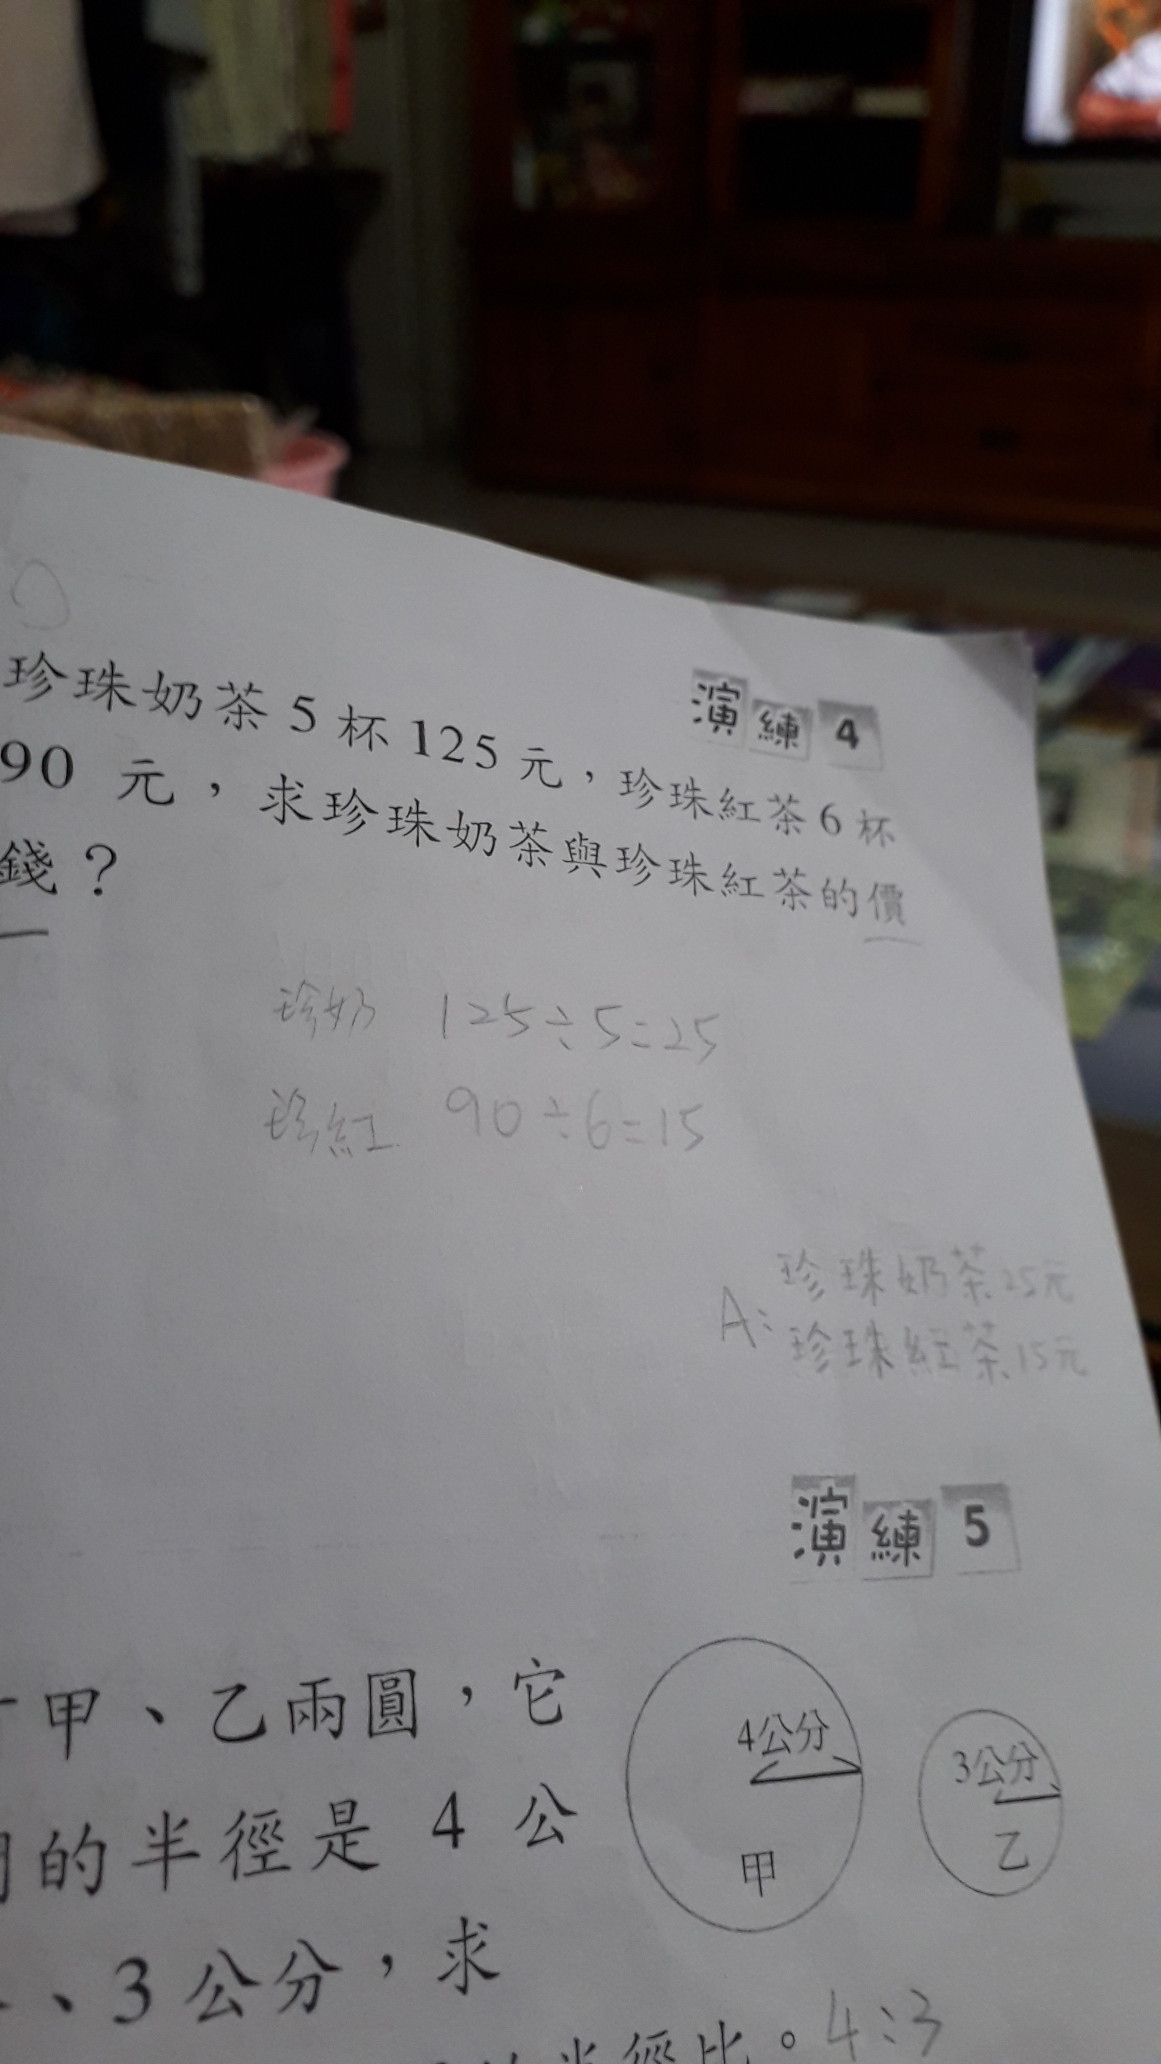 演練4
珍珠奶茶5杯125元，珍珠紅茶6杯
90元，求珍珠奶茶與珍珠紅茶的價
錢？
珍奶 125÷5=25
珍紅 90÷6=15
A：珍珠奶茶25元
珍珠紅茶15元
演練5
甲、乙兩圓，它
的半徑是4公
、3公分，求
半徑比。4：3
4公分
甲
3公分
乙